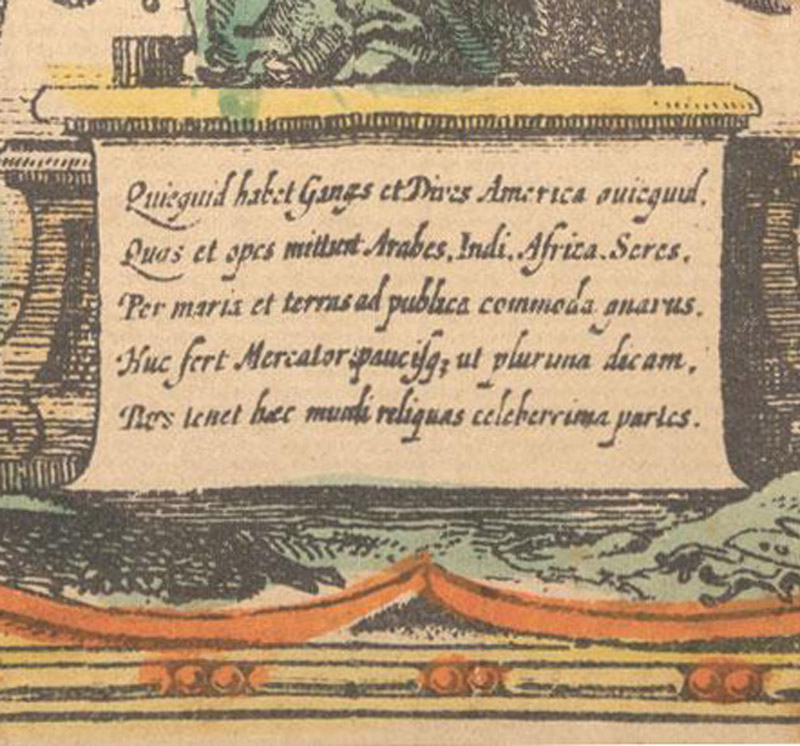 Quicquid habet Ganges et Dives America quicquid,
Quas et opes mittunt Arabes, Indi, Africa, Seres,
Per maria et terras ad publica commoda gnarus.
Huc fert Mercator paucisq; ut plurima dicam,
Res tenet hæc mundi reliquas celeberrima partes.